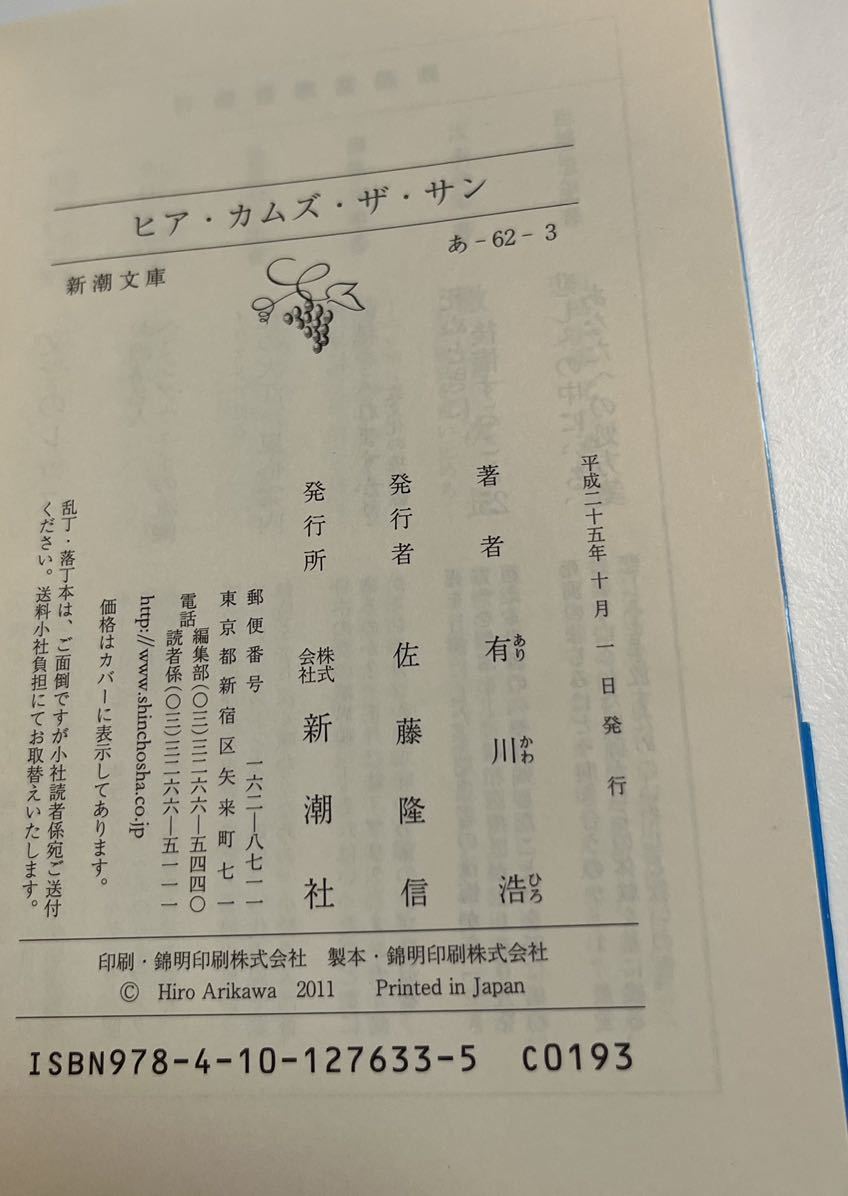 ヒア・カムズ・ザ・サン
新潮文庫
あ-62-3
平成二十五年十月一日発行
著者 有川浩
あり かわ ひろ
発行者 佐藤隆信
発行所 株式会社 新潮社
郵便番号 一六二―八七一一
東京都新宿区矢来町七一
電話 編集部(〇三)三二六六―五四四〇
読者係(〇三)三二六六―五一一一
http://www.shinchosha.co.jp
価格はカバーに表示してあります。
乱丁・落丁本は、ご面倒ですが小社読者係宛ご送付
ください。送料小社負担にてお取替えいたします。
印刷・錦明印刷株式会社 製本・錦明印刷株式会社
© Hiro Arikawa 2011 Printed in Japan
ISBN978-4-10-127633-5 C0193